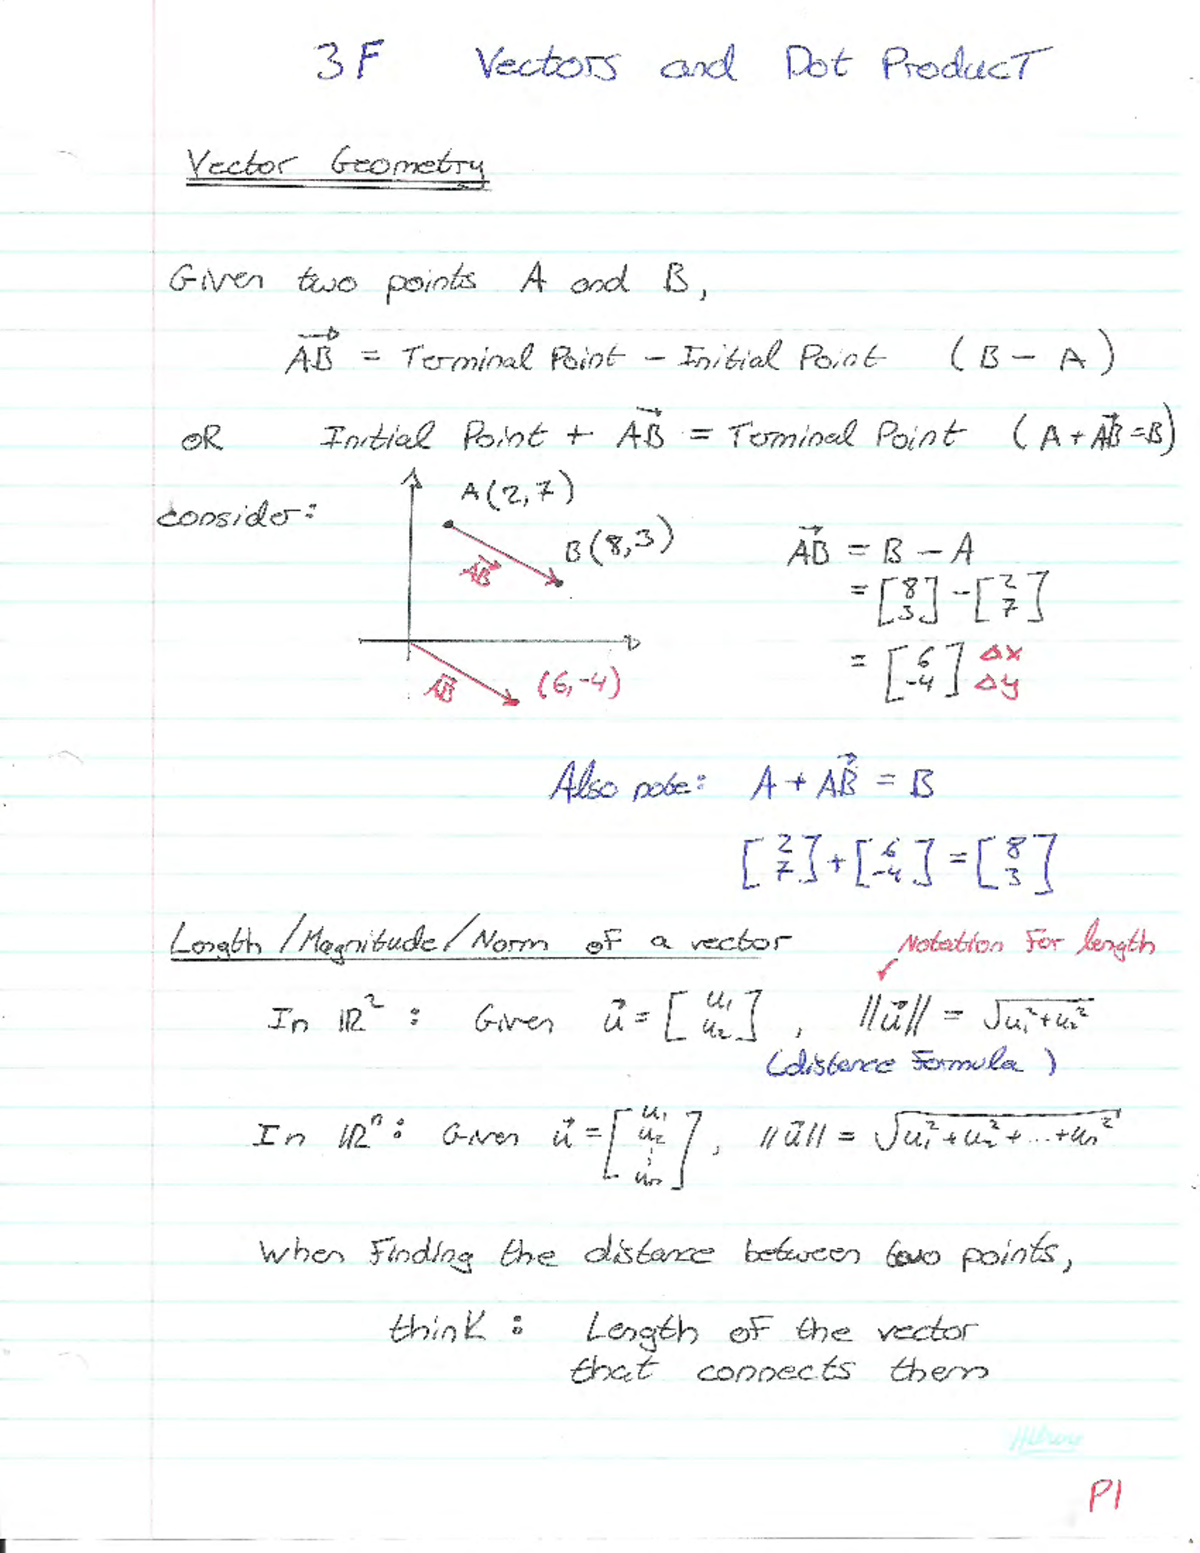 3F Vectors and Dot Product
Vector Geometry
Given two points A and B,
$\overrightarrow{AB}$ = Terminal Point - Initial Point (B - A)
OR Initial Point + $\overrightarrow{AB}$ = Terminal Point (A + $\overrightarrow{AB}$ = B)
consider:
A(2,7)
B(8,3)
$\overrightarrow{AB}$
$\overrightarrow{AB}$ (6,-4)
$\overrightarrow{AB}$ = B - A
= $\begin{bmatrix} 8 \\ 3 \end{bmatrix} - \begin{bmatrix} 2 \\ 7 \end{bmatrix}$
= $\begin{bmatrix} 6 \\ -4 \end{bmatrix}$ Δx Δy
Also note: A + $\overrightarrow{AB}$ = B
$\begin{bmatrix} 2 \\ 7 \end{bmatrix} + \begin{bmatrix} 6 \\ -4 \end{bmatrix} = \begin{bmatrix} 8 \\ 3 \end{bmatrix}$
Length/Magnitude/Norm of a vector Notation For length
In ℝ² : Given $\vec{u} = \begin{bmatrix} u_1 \\ u_2 \end{bmatrix}$, $||\vec{u}|| = \sqrt{u_1^2 + u_2^2}$
(distance Formula)
In ℝⁿ : Given $\vec{u} = \begin{bmatrix} u_1 \\ u_2 \\ \vdots \\ u_n \end{bmatrix}$, $||\vec{u}|| = \sqrt{u_1^2 + u_2^2 + \ldots + u_n^2}$
When Finding the distance between two points,
think : Length of the vector
that connects them
P1